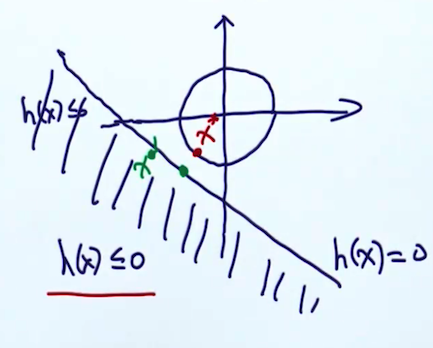 h(x)≤0
x*
x
h(x)≤0
h(x)=0